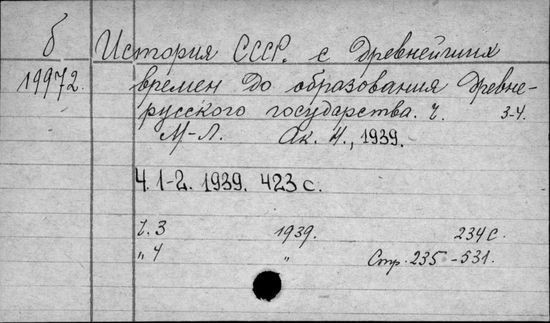 б
История СССР. с древнейших
19972.
времен до образования древне-
русского государства. Ч. 3-4.
М-Л. Ак. Н., 1939.
Ч. 1-2. 1939. 423 с.
Ч. 3 1939. 234 с.
„ 4 „ Стр. 235-531.